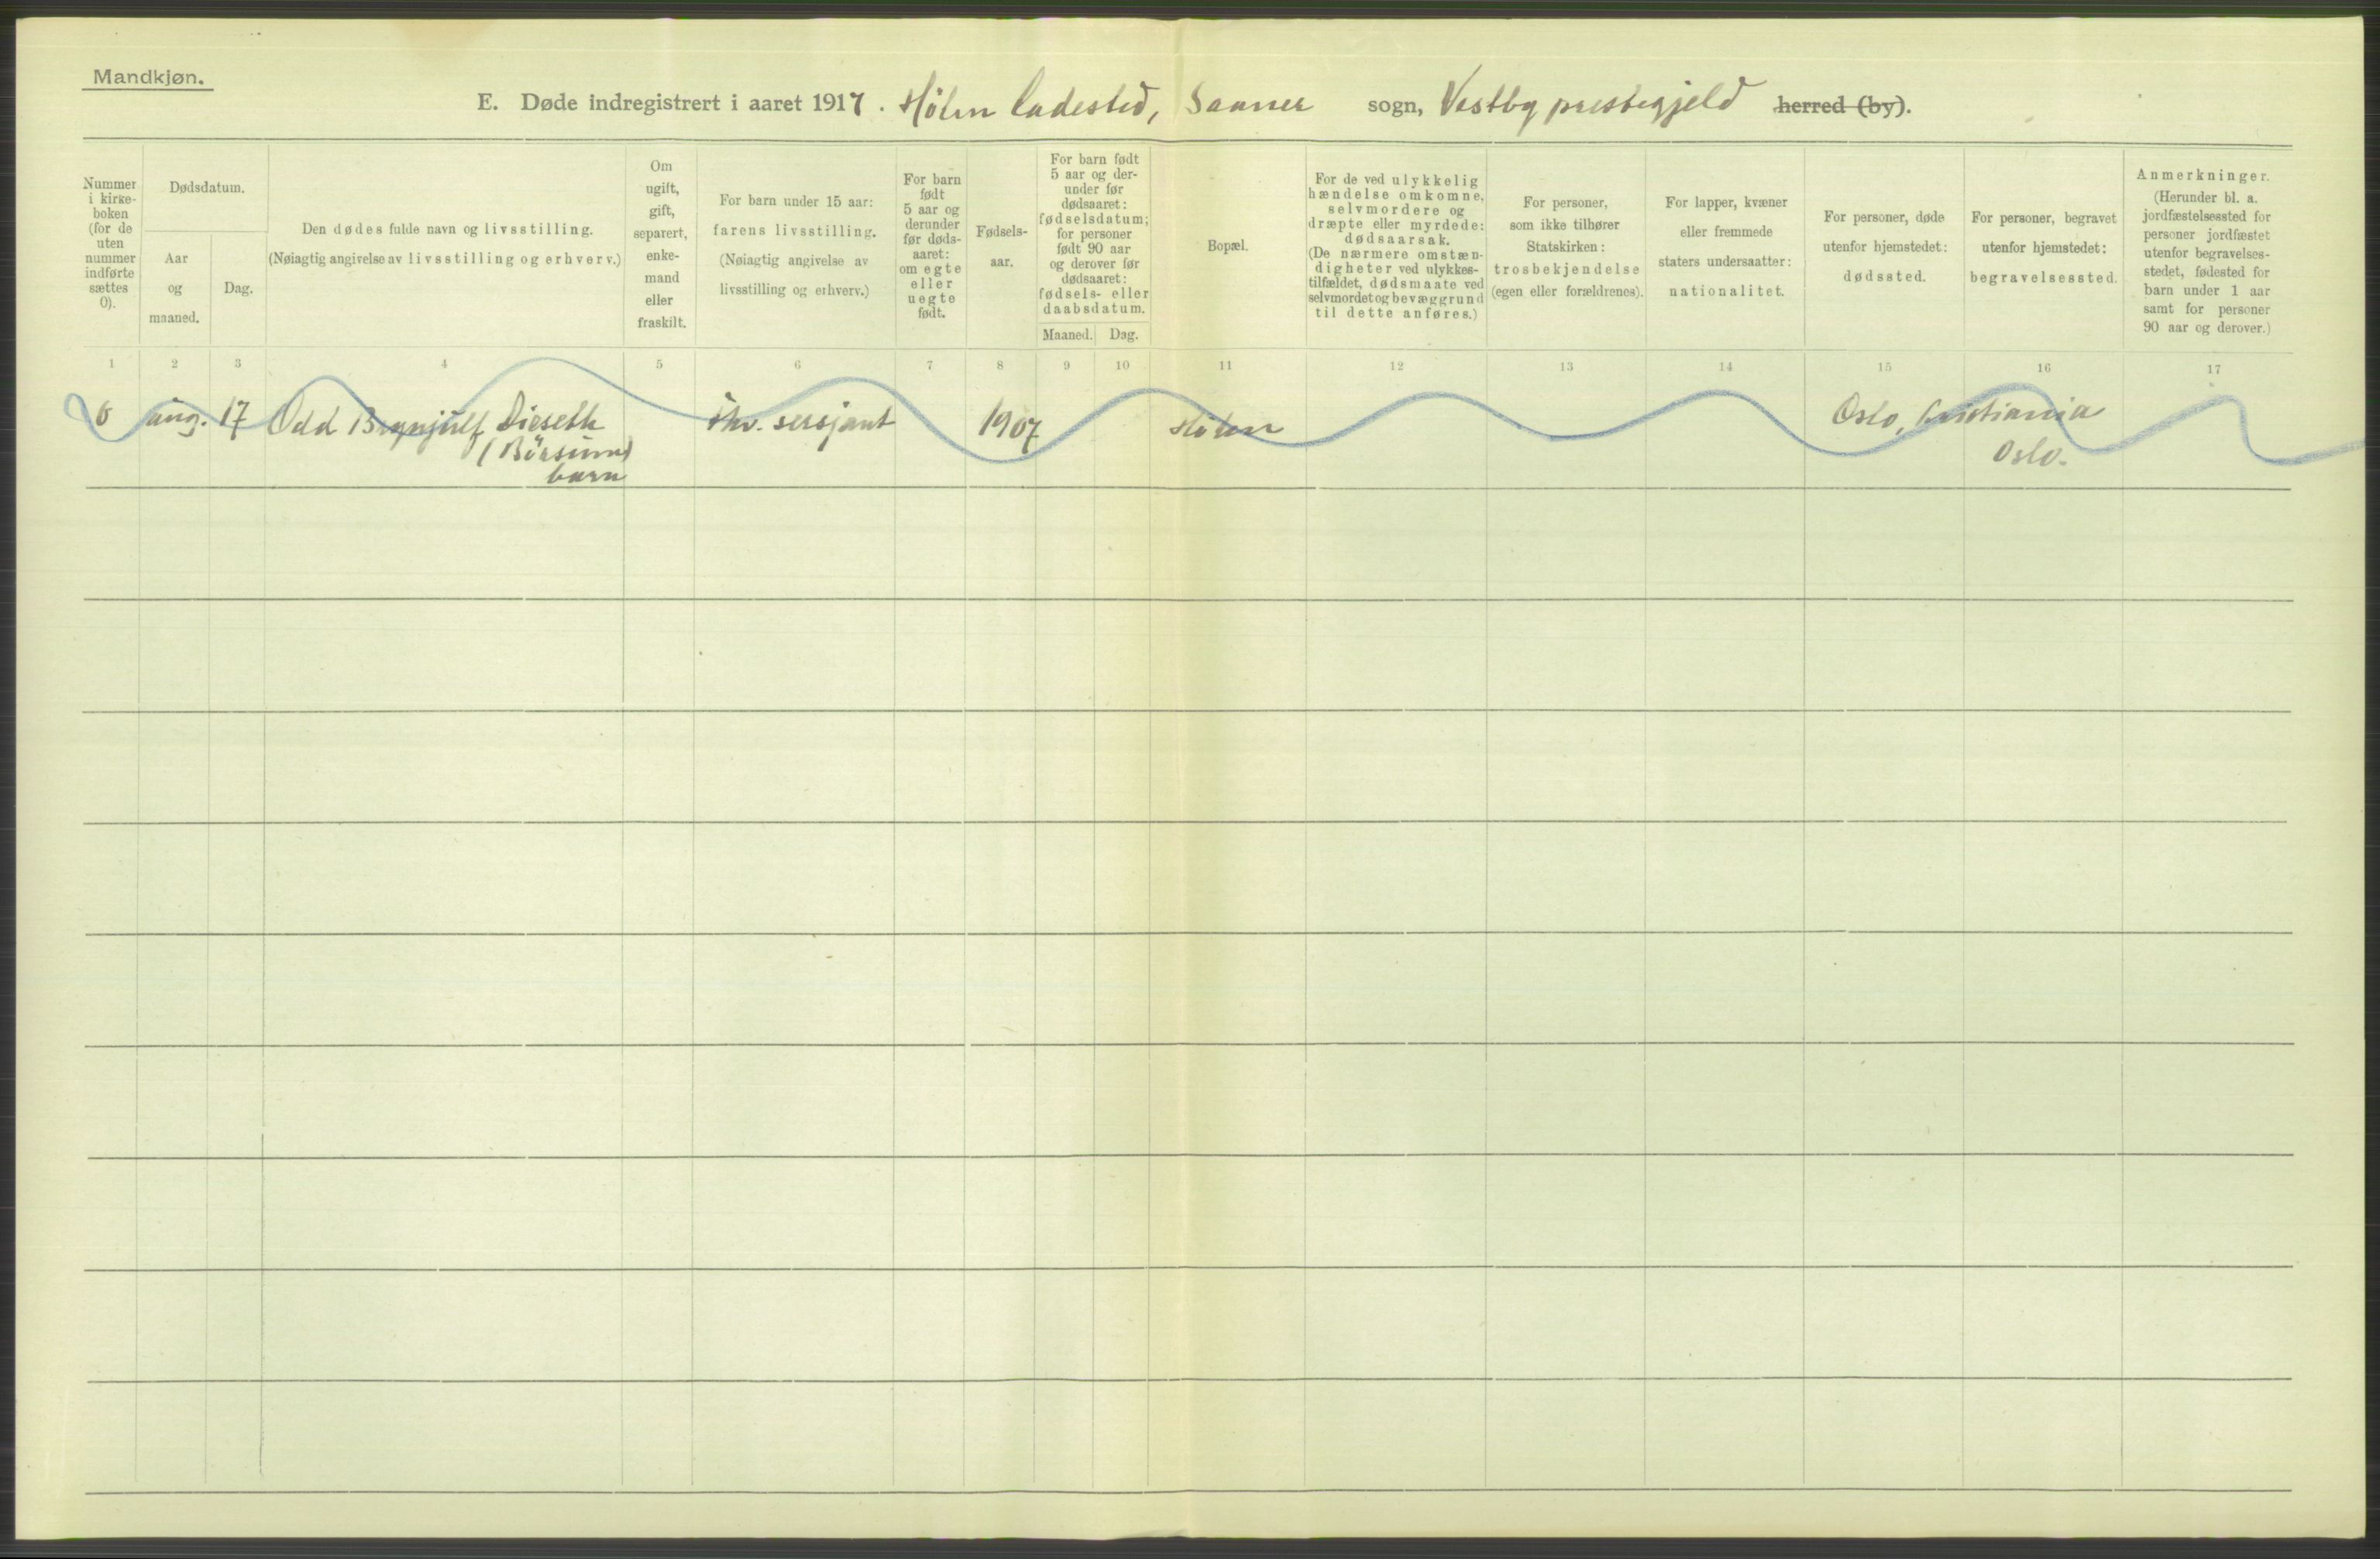 Mandkjøn.
E. Døde indregistrert i aaret 1917. Hølen ladested, Saaner sogn, Vestby prestegjeld herred (by).
Nummer i kirke-boken (for de uten nummer indførte sættes 0).
Dødsdatum.
Aar og maaned.
Dag.
Den dødes fulde navn og livsstilling.
(Nøiagtig angivelse av livsstilling og erhverv.)
Om ugift, gift, separert, enke-mand eller fraskilt.
For barn under 15 aar:
farens livsstilling.
(Nøiagtig angivelse av livsstilling og erhverv.)
For barn født 5 aar og derunder før døds-aaret: om egte eller uegte født.
Fødsels-aar.
For barn født 5 aar og der-under før dødsaaret: fødselsdatum; for personer født 90 aar og derover før dødsaaret: fødsels- eller daabsdatum.
Maaned. Dag.
Bopæl.
For de ved ulykkelig hændelse omkomne, selvmordere og dræpte eller myrdede: dødsaarsak.
(De nærmere omstæn-digheter ved ulykkes-tilfældet, dødsmaate ved selvmordet og bevæggrund til dette anføres.)
For personer, som ikke tilhører Statskirken: trosbekjendelse (egen eller forældrenes).
For lapper, kvæner eller fremmede staters undersaatter: nationalitet.
For personer, døde utenfor hjemstedet: dødssted.
For personer, begravet utenfor hjemstedet: begravelsessted.
Anmerkninger.
(Herunder bl. a. jordfæstelsessted for personer jordfæstet utenfor begravelses-stedet, fødested for barn under 1 aar samt for personer 90 aar og derover.)
1 2 3 4 5 6 7 8 9 10 11 12 13 14 15 16 17
6 aug. 17 Odd Brynjulf Dieseth fhv. sersjant 1907 Hølen Oslo, Kristiania
(Börsum) Oslo.
barn